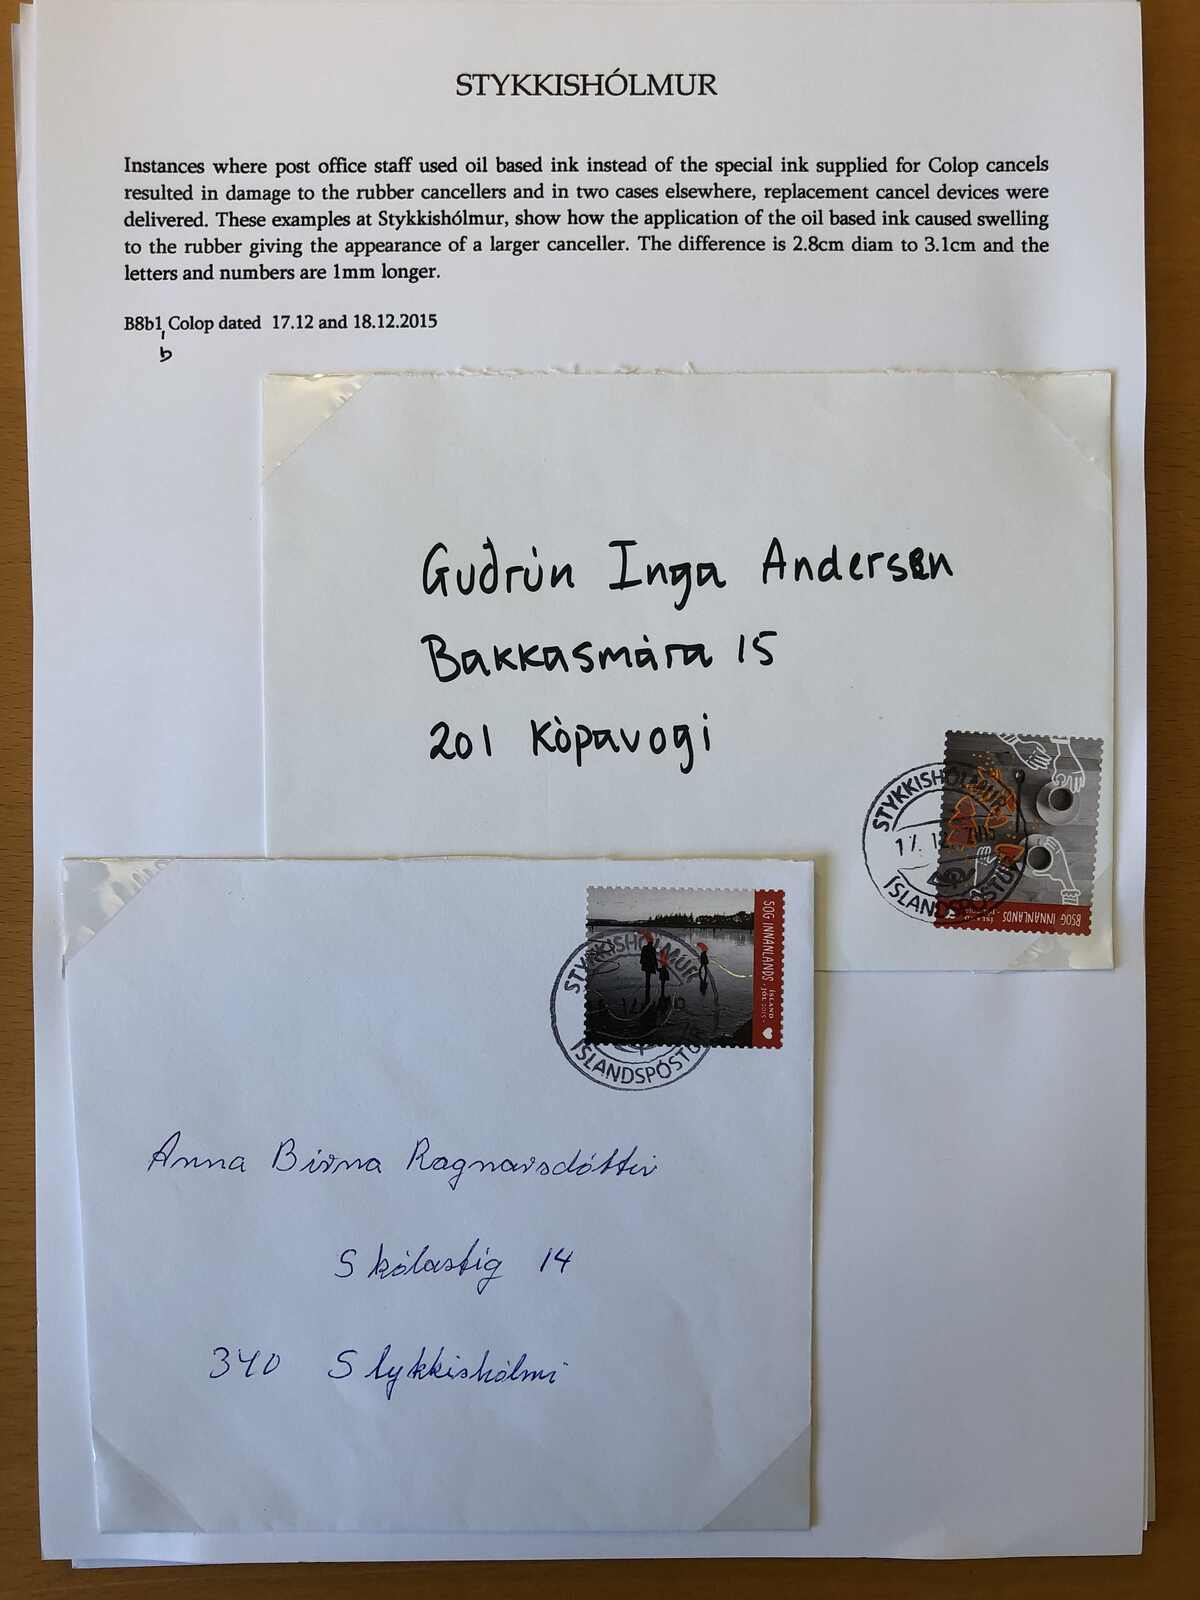 STYKKISHÓLMUR
Instances where post office staff used oil based ink instead of the special ink supplied for Colop cancels
resulted in damage to the rubber cancellers and in two cases elsewhere, replacement cancel devices were
delivered. These examples at Stykkishólmur, show how the application of the oil based ink caused swelling
to the rubber giving the appearance of a larger canceller. The difference is 2.8cm diam to 3.1cm and the
letters and numbers are 1mm longer.
B8b1 Colop dated 17.12 and 18.12.2015
b
Guðrún Inga Andersen
Bakkasmára 15
201 Kòpavogi
STYKKISHÓLMUR
17. 12. 2015
ÍSLANDSPÓSTUR
B50G INNANLANDS
50G INNANLANDS
ÍSLAND
JÓL 2015
STYKKISHÓLMUR
ÍSLANDSPÓSTU
Anna Birna Ragnarsdóttir
Skólastig 14
340 Stykkishólmi